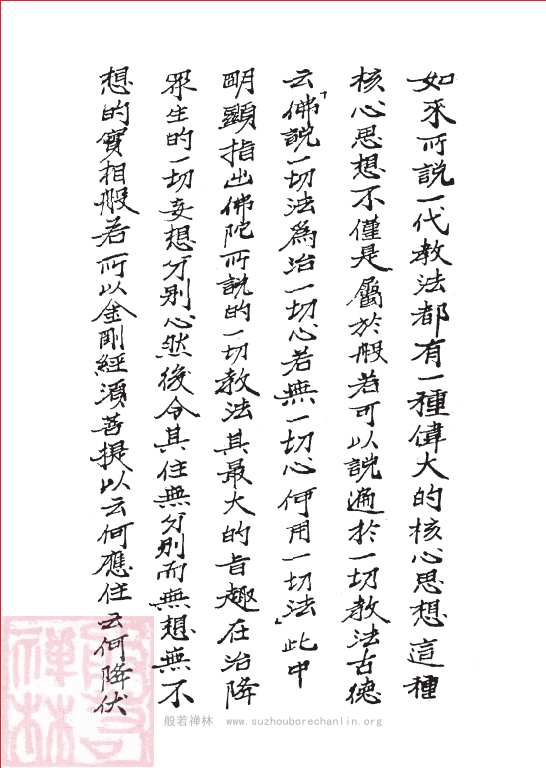 如來所說一代教法都有一種偉大的核心思想這種
核心思想不僅是屬於般若可以說遍於一切教法古德
云「佛說一切法為治一切心若無一切心何用一切法」此中
明顯指出佛陀所說的一切教法其最大的旨趣在治降
眾生的一切妄想分別心然後令其住無分別而無想無不
想的實相般若所以金剛經須菩提以云何應住云何降伏
般若禅林 www.suzhouborechanlin.org
般若
禅林